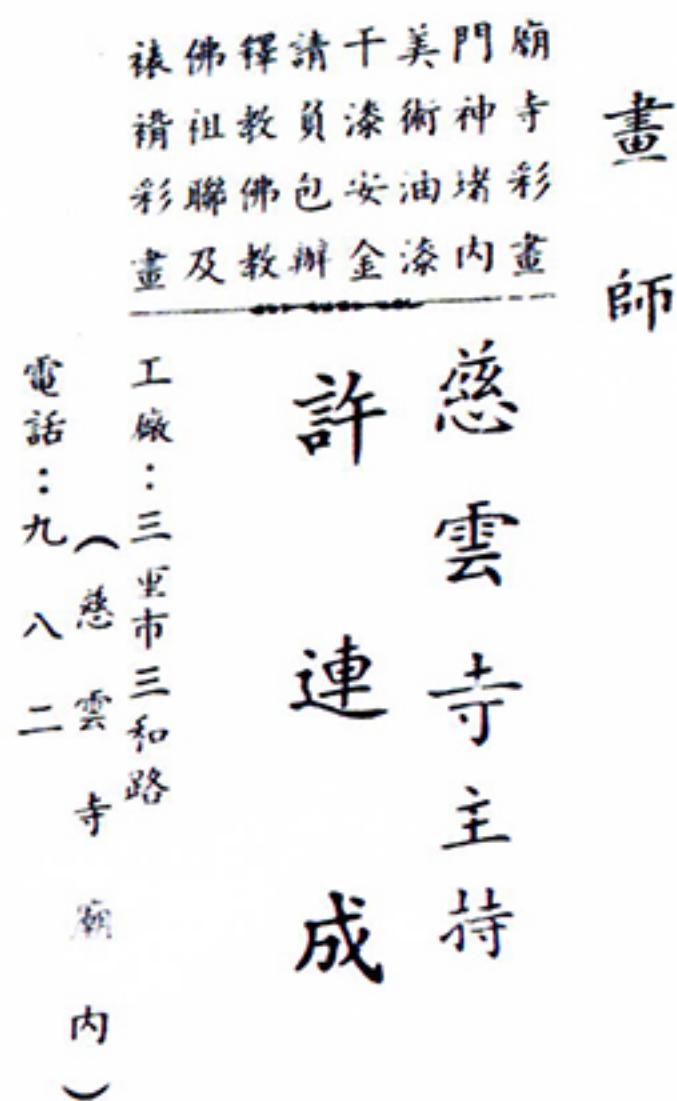 畫師
廟寺彩畫
門神堵內
美術油漆
干漆安金
請負包辦
釋教佛教
佛祖聯及
裱褙彩畫
慈雲寺主持
許連成
工廠：三重市三和路
（慈雲寺廟內）
電話：九八二